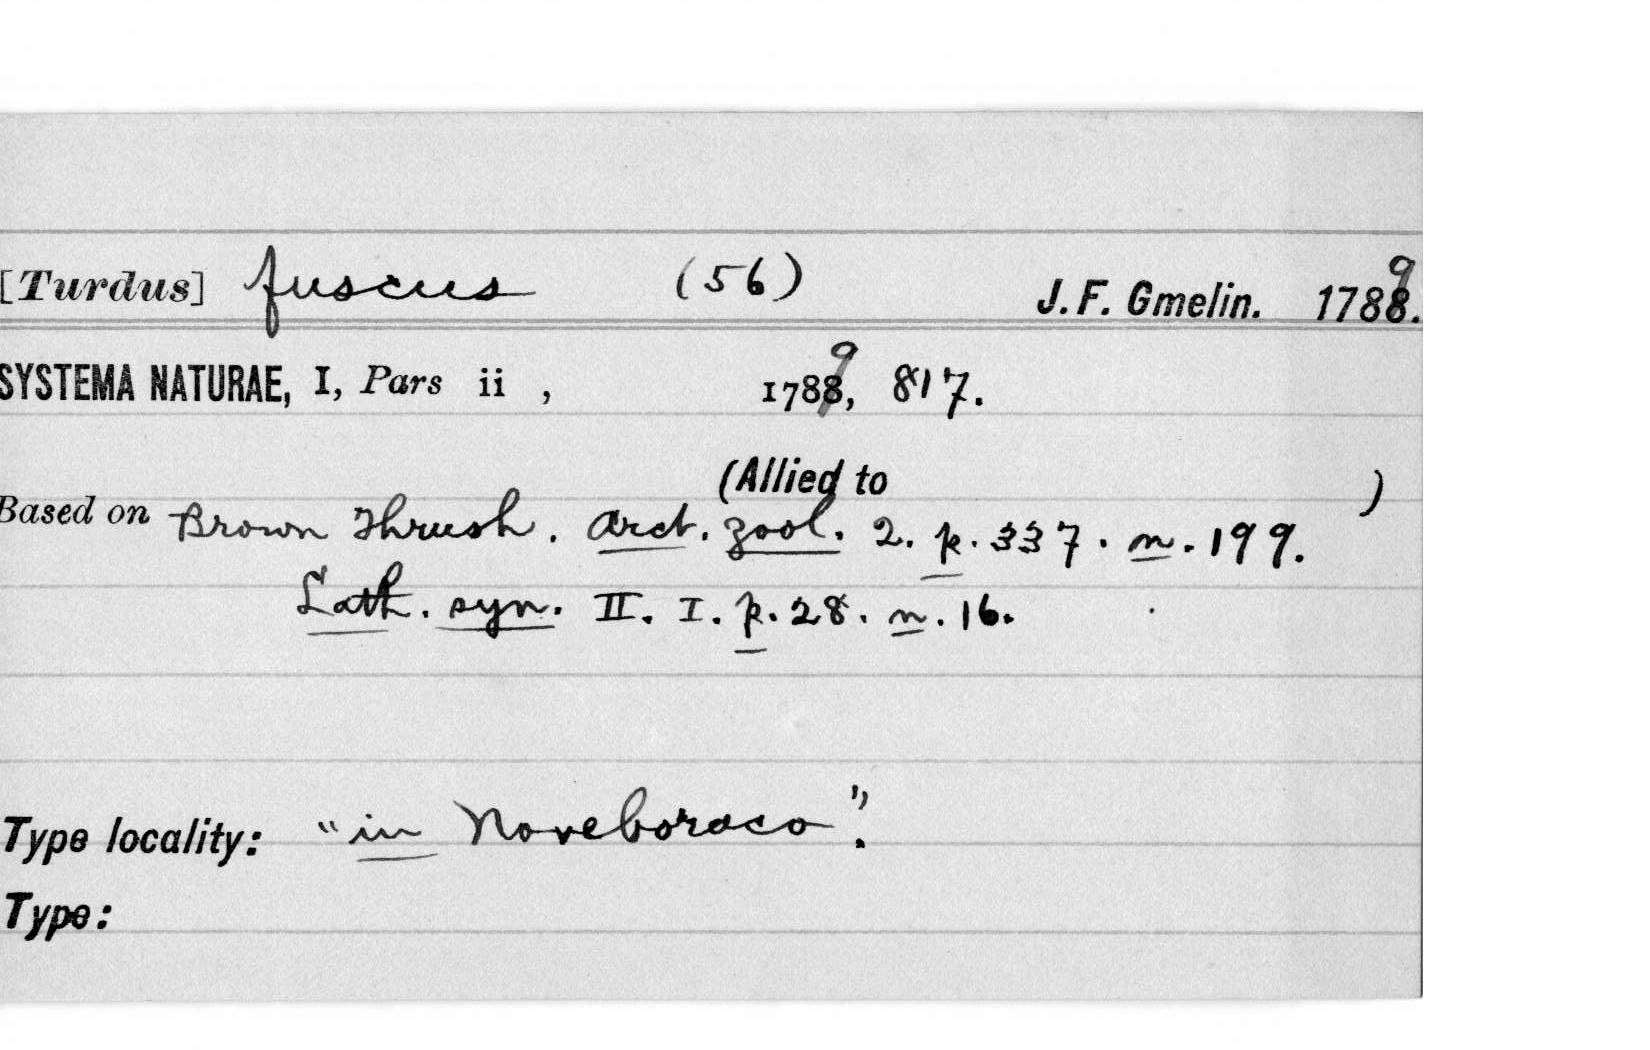 [Turdus] fuscus (56) J. F. Gmelin. 1789.
SYSTEMA NATURAE, I, Pars ii , 1789, 817.
(Allied to )
Based on Brown Thrush. Arct. zool. 2. p. 337. n. 199.
Lath. syn. II. I. p. 28. n. 16.
Type locality: "in Noveboraco".
Type: